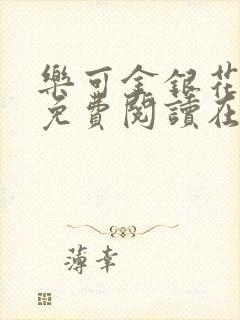 樂可金銀花
免費閱讀在
薄幸